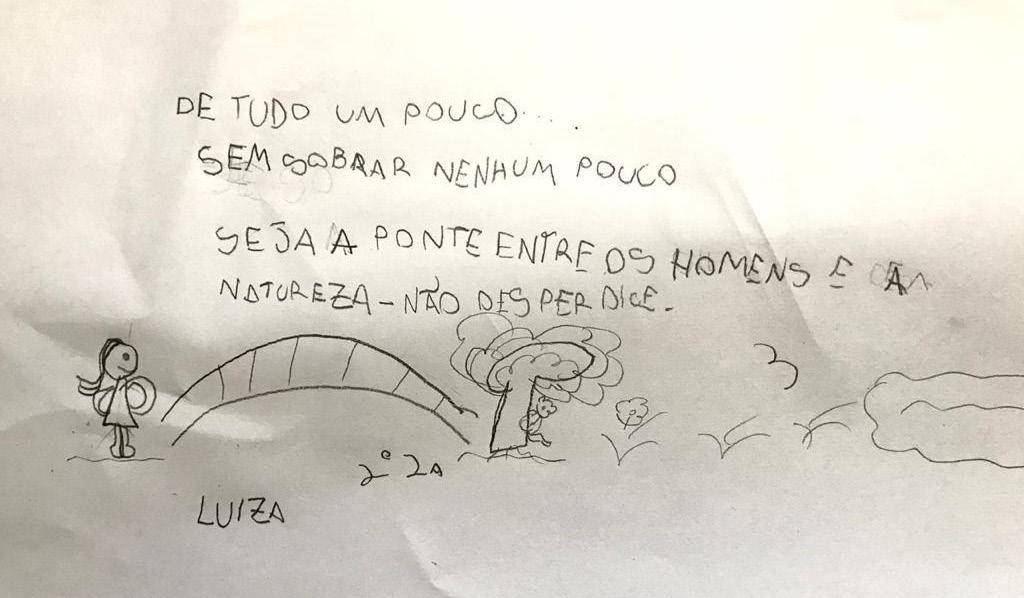 DE TUDO UM POUCO....
SEM SOBRAR NENHUM POUCO
SEJA A PONTE ENTRE OS HOMENS E A
NATUREZA - NÃO DESPERDICE.
2º 2A
LUIZA